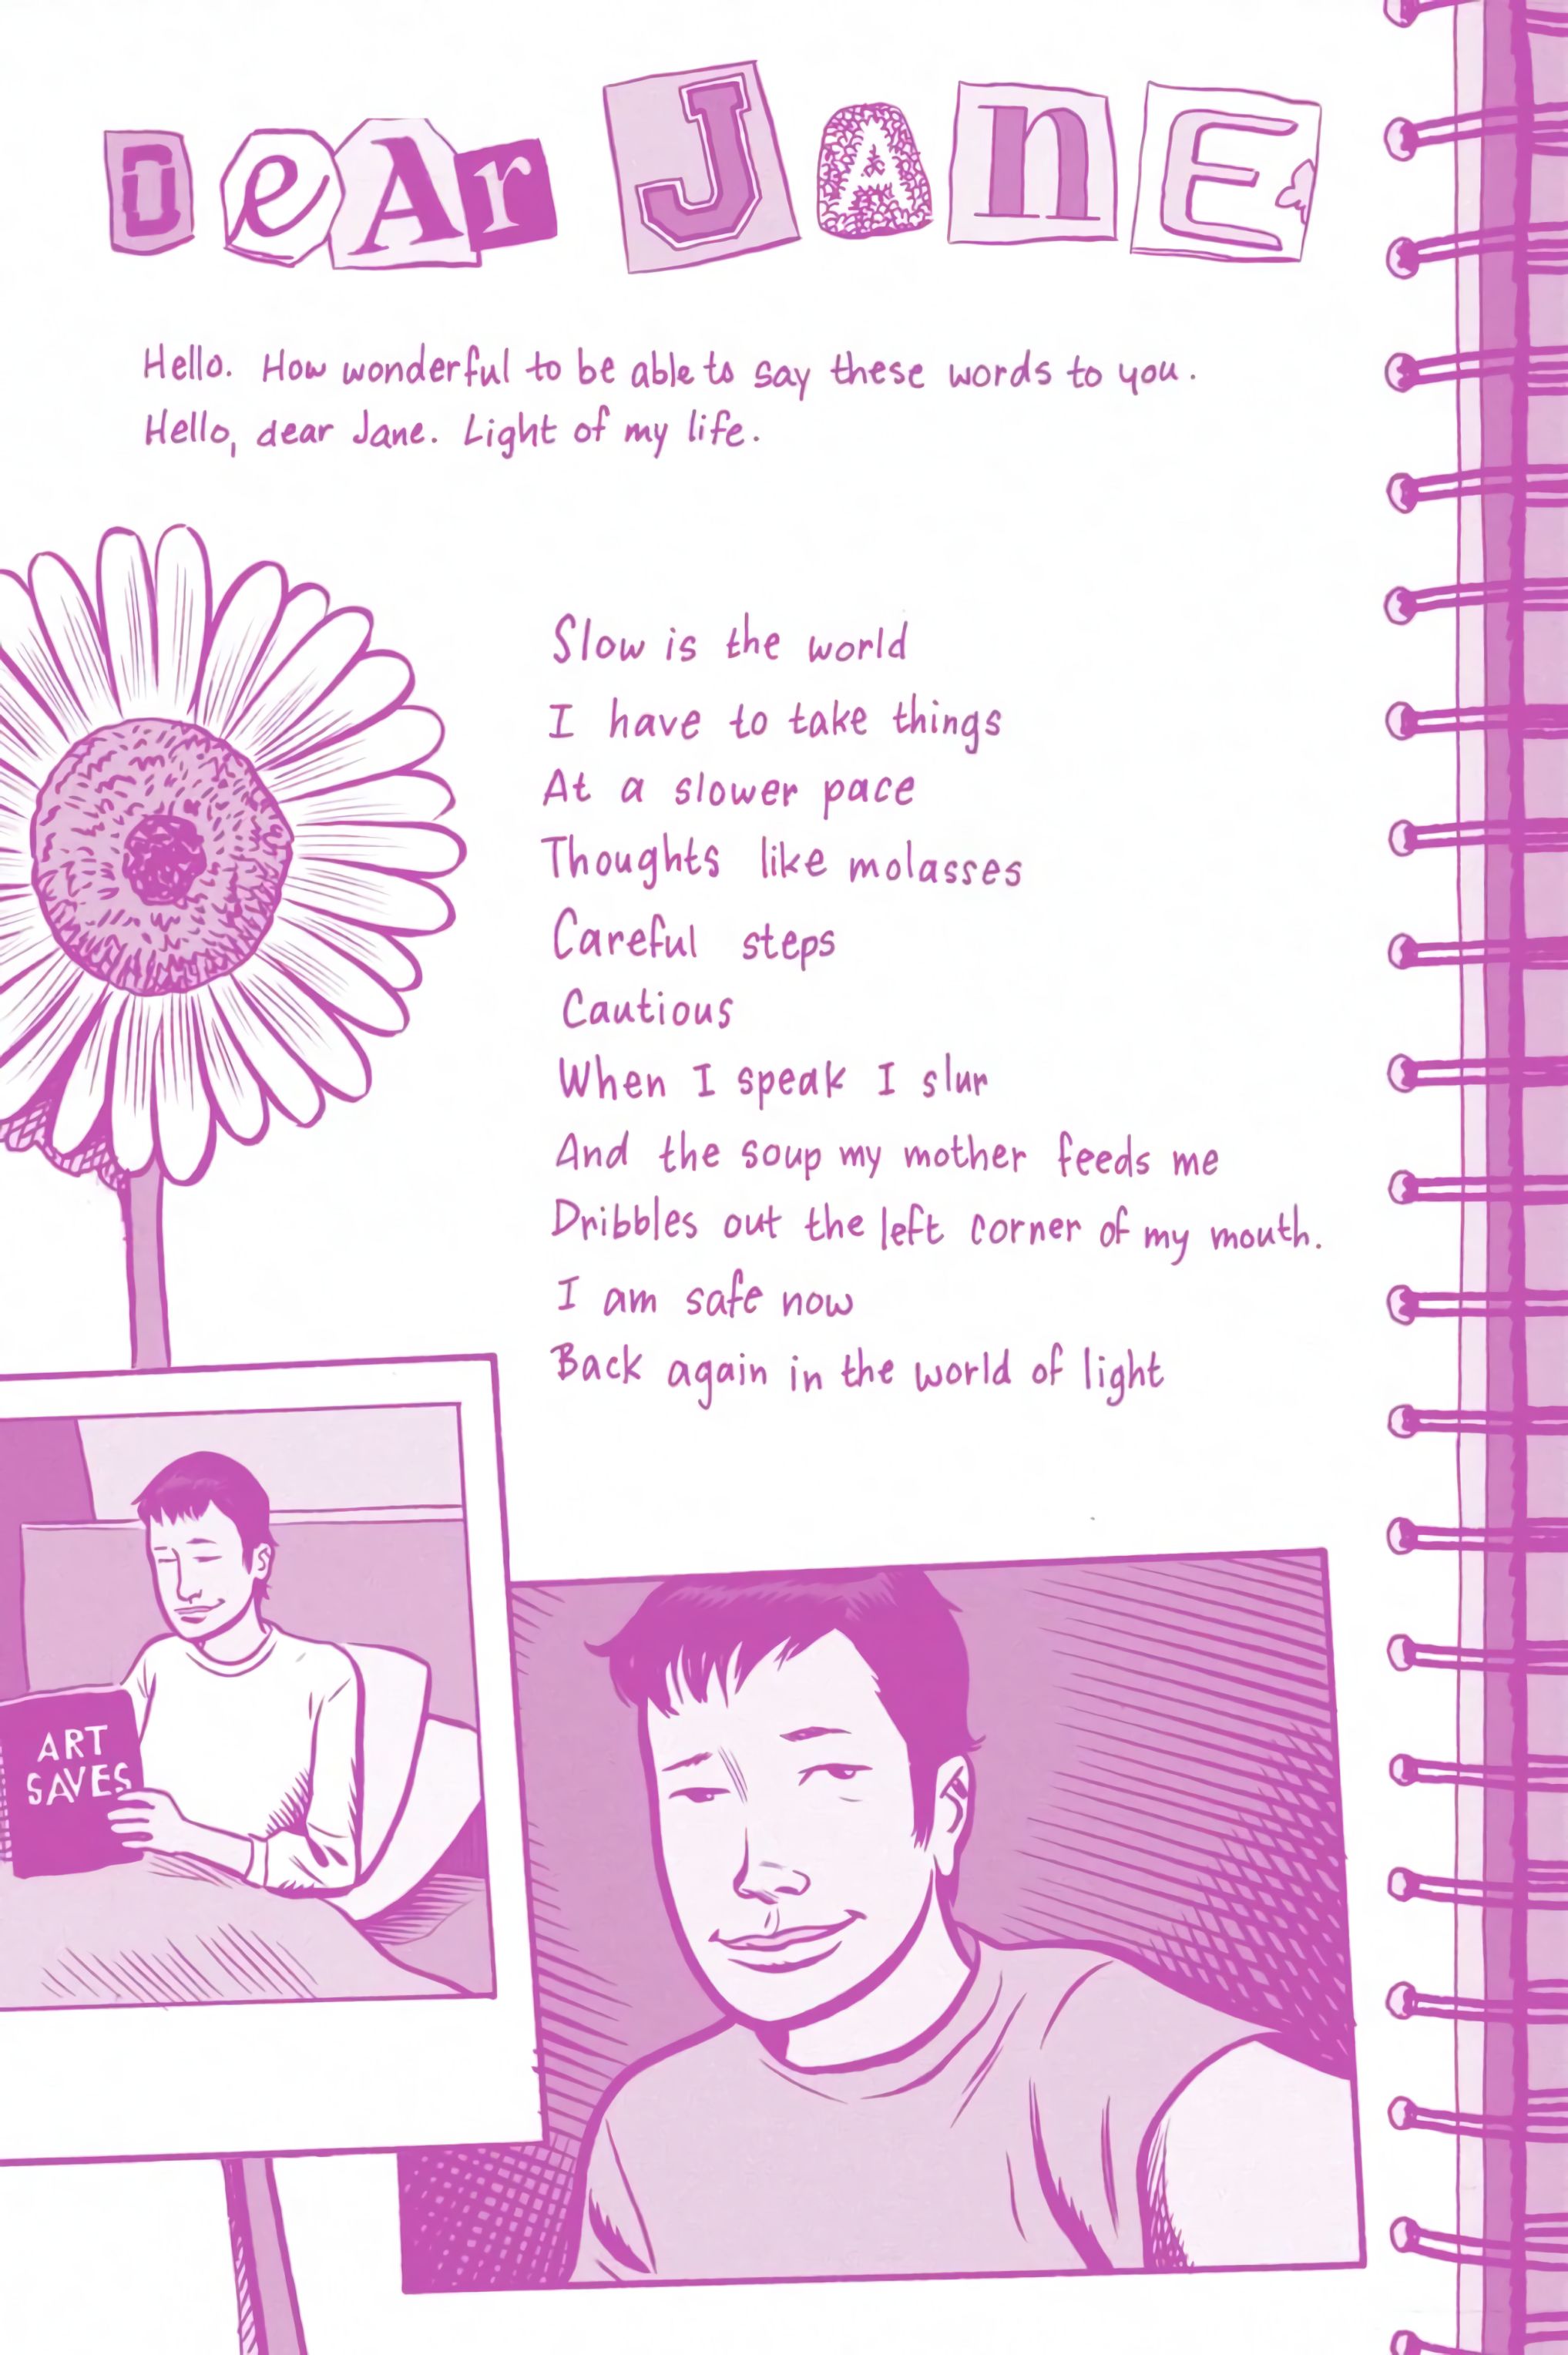 DeAr JAnE
Hello. How wonderful to be able to say these words to you.
Hello, dear Jane. Light of my life.
Slow is the world
I have to take things
At a slower pace
Thoughts like molasses
Careful steps
Cautious
When I speak I slur
And the soup my mother feeds me
Dribbles out the left corner of my mouth.
I am safe now
Back again in the world of light
ART
SAVES